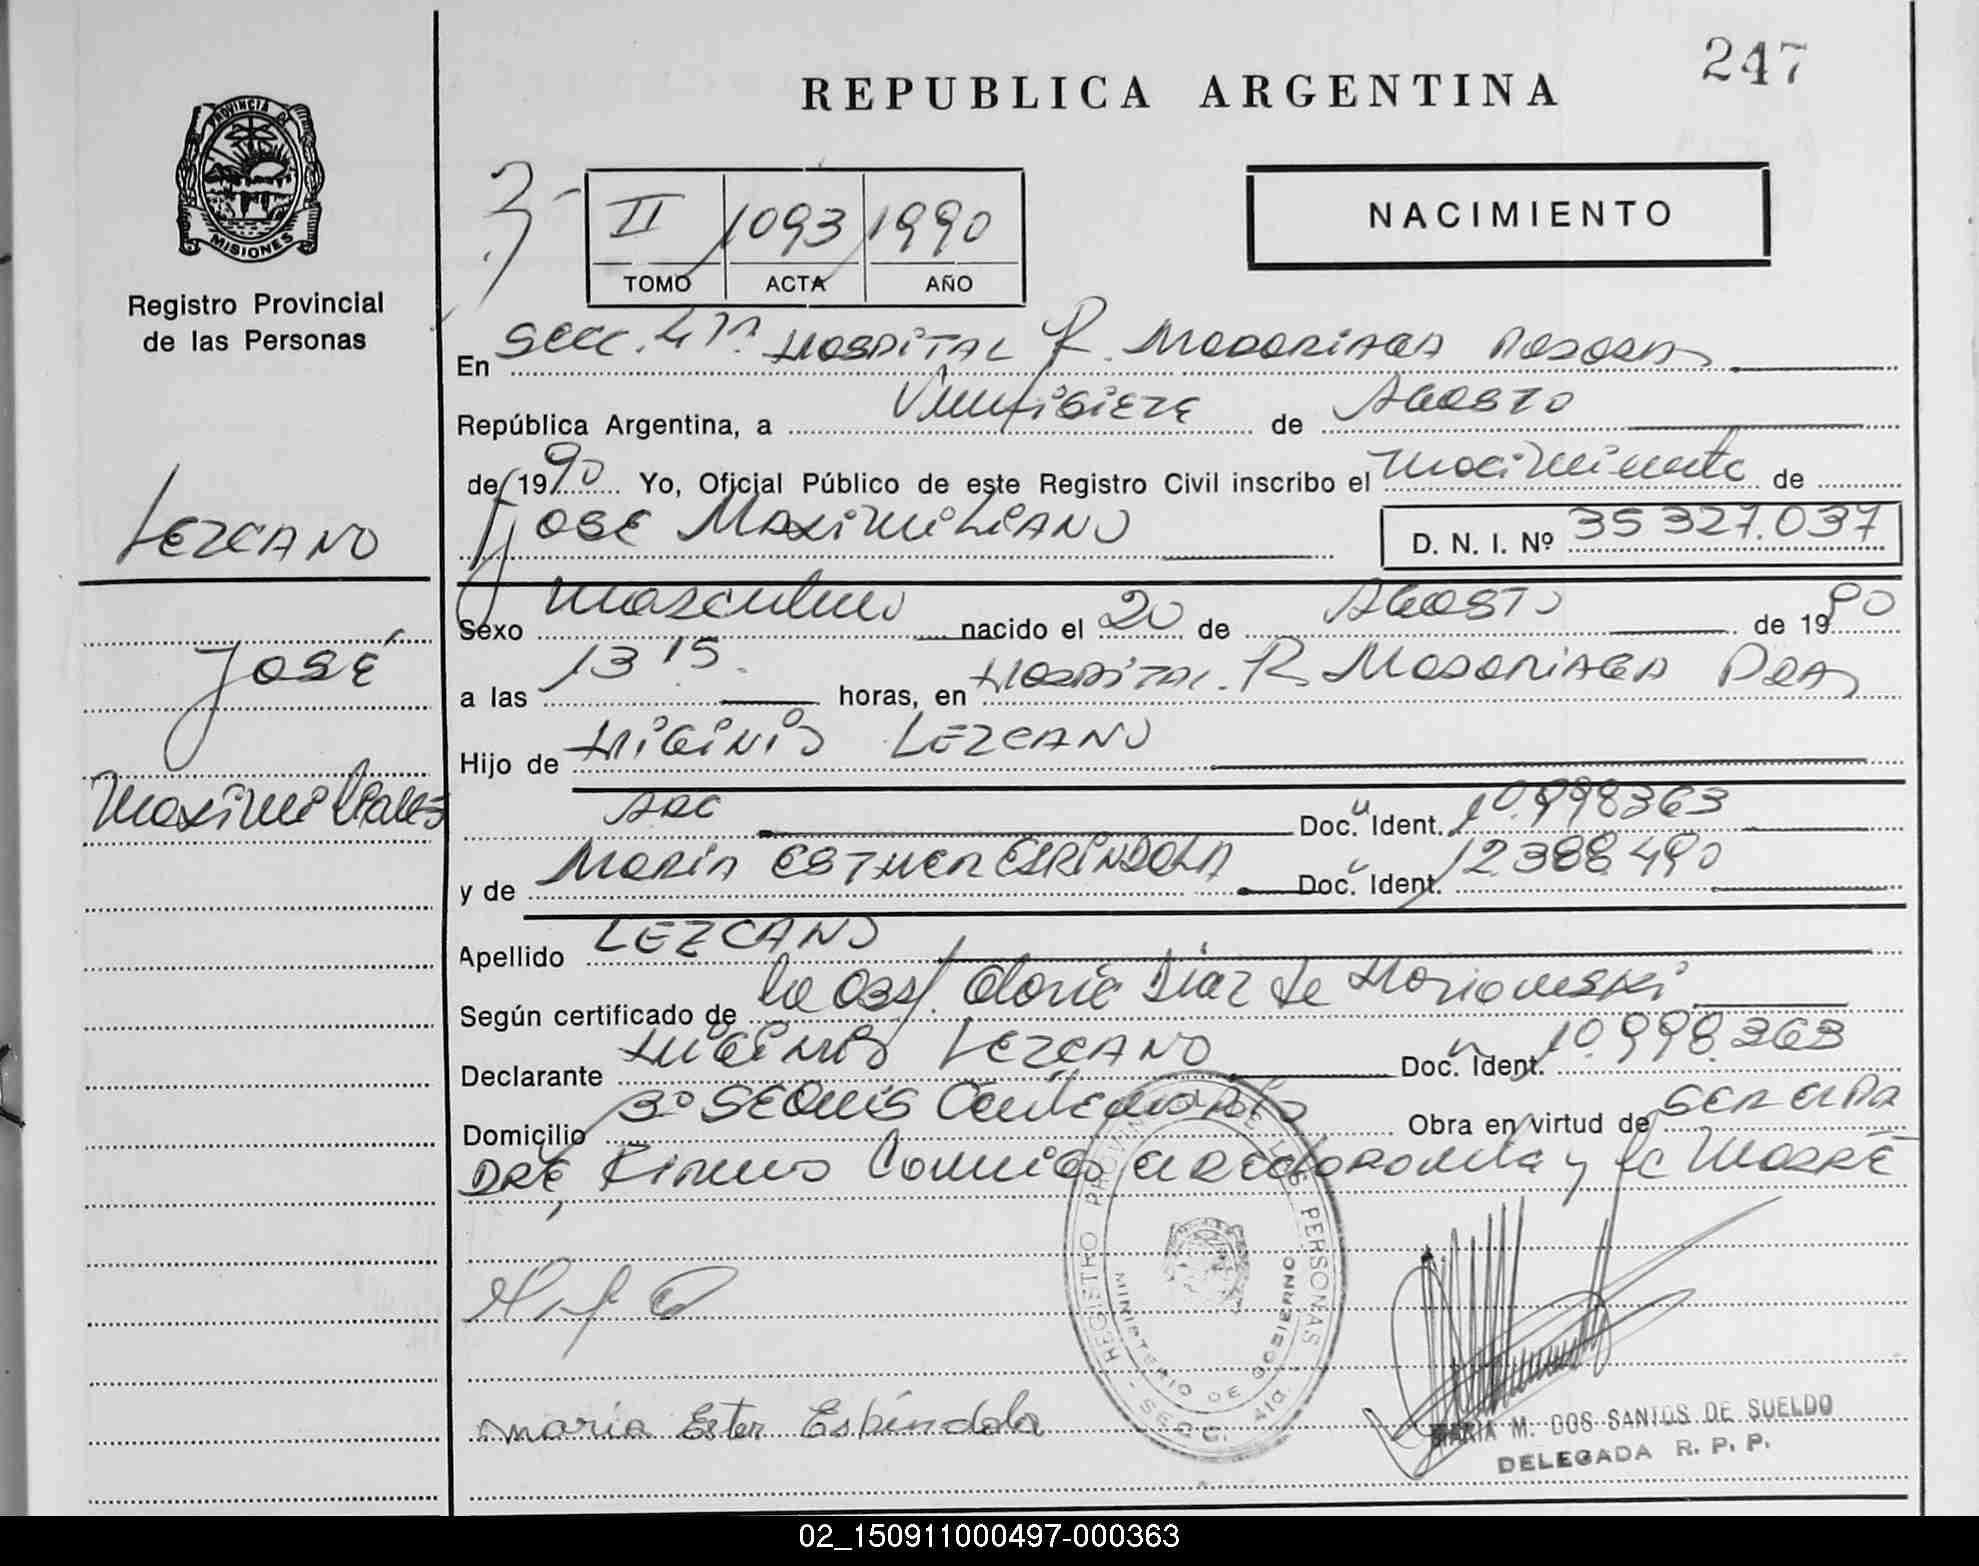 247
REPUBLICA ARGENTINA
PROVINCIA DE
MISIONES
Registro Provincial
de las Personas
II 1093 1990
TOMO ACTA AÑO
NACIMIENTO
En Secc. 4ta. HOSPITAL R. MADARIAGA POSADAS
República Argentina, a Veintisiete de AGOSTO
de 1990 Yo, Oficial Público de este Registro Civil inscribo el nacimiento de
JOSE MAXIMILIANO D. N. I. Nº 35 327.037
LEZCANO
JOSÉ
Maximiliano
Sexo masculino nacido el 20 de AGOSTO de 1990
a las 13 15 horas, en HOSPITAL R. MADARIAGA PDAS
Hijo de HIGINIO LEZCANO
ARG Doc. Ident. 10.998363
y de MARIA ESTHER ESPINDOLA Doc. Ident. 12388490
Apellido LEZCANO
Según certificado de la Obst. Gloria Diaz de
Declarante HIGINIO LEZCANO Doc. Ident. 10.998.363
Domicilio Obra en virtud de SER EL PA
DRE, Firman Conmigo el DECLARANTE y la MADRE
REGISTRO PROVINCIAL DE LAS PERSONAS
MINISTERIO DE GOBIERNO
- SECC. 4ta. -
maria Ester Espíndola
MARIA M. DOS SANTOS DE SUELDO
DELEGADA R. P. P.
02_150911000497-000363